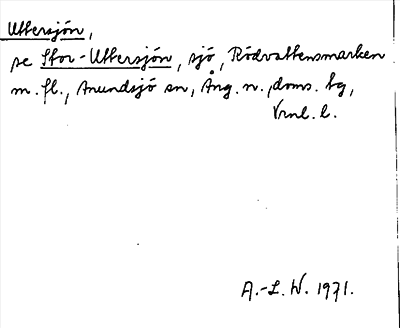 Uttersjön,
se Stor-Uttersjön, sjö, Rödvattensmarken
m. fl., Anundsjö sn, Ång. n., doms. bg,
Vrnl. l.
A.-L. W. 1971.